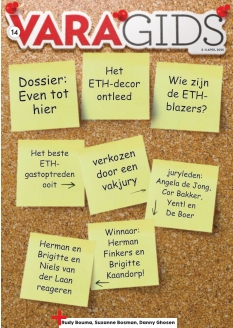 14
VARAGIDS
5-11 APRIL 2015
Dossier:
Even tot
hier
Het
ETH-decor
ontleed
Wie zijn
de ETH-
blazers?
Het beste
ETH-
gastoptreden
ooit →
verkozen
door een
vakjury →
juryleden:
Angela de Jong,
Cor Bakker,
Yentl en
De Boer
Herman en
Brigitte en
Niels van
der Laan
reageren
Winnaar:
Herman
Finkers en
Brigitte
Kaandorp!
+Rudy Bouma, Suzanne Bosman, Danny Ghosen